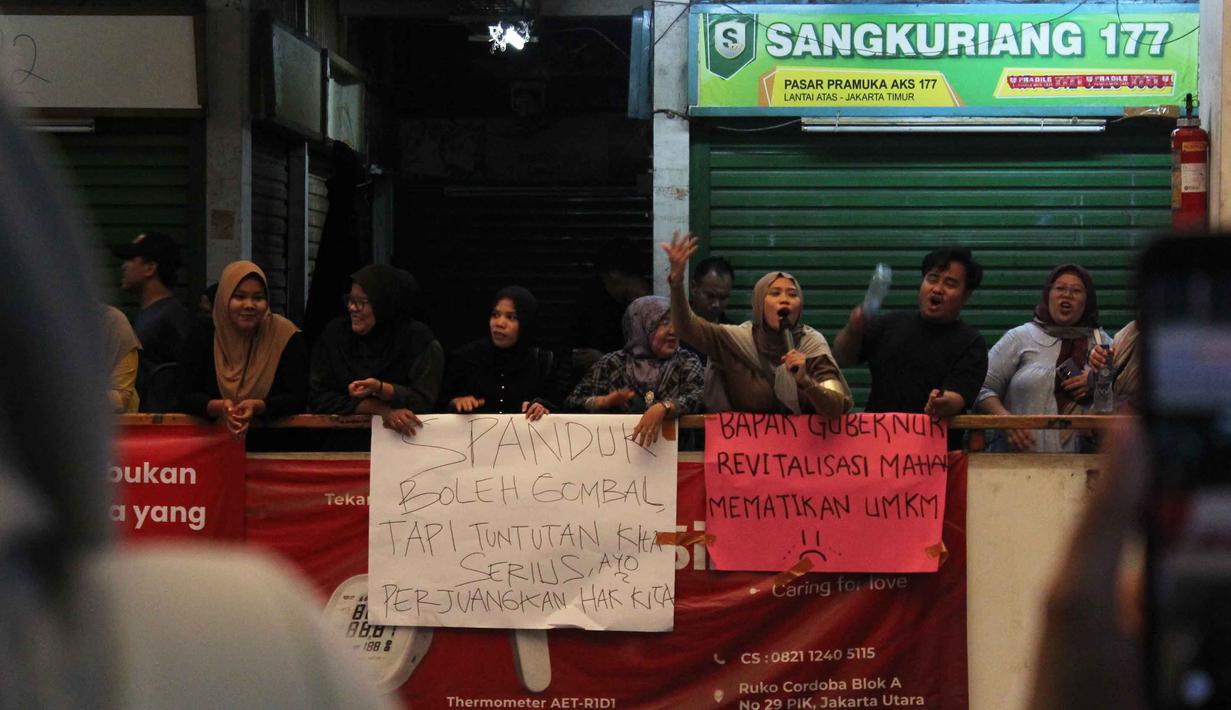 2
S
SANGKURIANG 177
PASAR PRAMUKA AKS 177
LANTAI ATAS - JAKARTA TIMUR
bukan
a yang
Tekan
SPANDUK
BOLEH GOMBAL,
TAPI TUNTUTAN KITA
SERIUS, AYO
PERJUANGKAN HAK KITA
BAPAK GUBERNUR
REVITALISASI MAHA
MEMATIKAN UMKM
Caring for love
CS : 0821 1240 5115
Ruko Cordoba Blok A
No 29 PIK, Jakarta Utara
Thermometer AET-R1D1